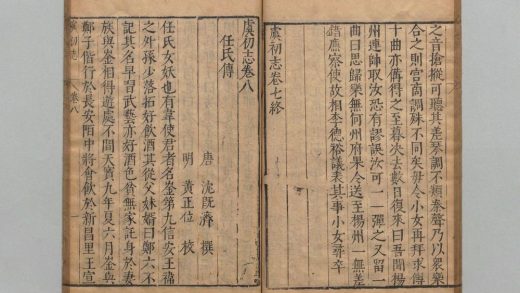 之音搶摐可聽其差琴調不類秦聲乃以衆樂
合之則宮商調殊不同矣母令小女再拜求傳
十曲亦備得之至暮次去數日復來曰吾聞楊
州連帥取汝恐有謬誤汝可一一彈之又留一
曲曰思歸樂無何州府果令送至楊州一無差
錯廉察使故相李德裕議表其事小女尋卒
虞初志卷七終
虞初志卷八
任氏傳
唐 沈既濟 撰
明 黃正位 校
任氏女妖也有韋使君者名崟第九信安王禕
之外孫少落拓好飲酒其從父妹婿曰鄭六不
記其名早習武藝亦好酒色貧無家託身於妻
族與崟相得遊處不間天寶九年夏六月崟與
鄭子偕行於長安陌中將會飲於新昌里王宣
虞初志 卷八 一